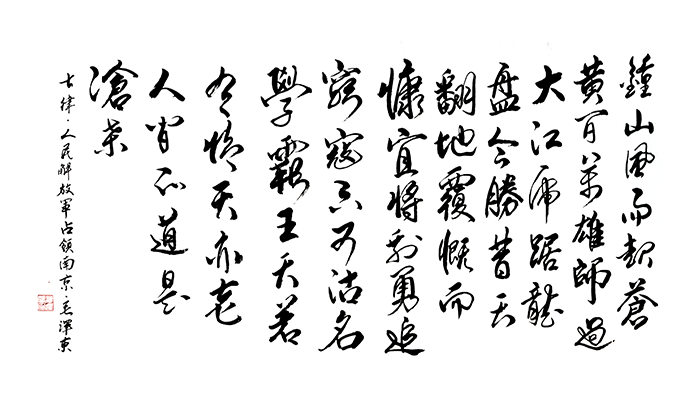 鐘山風雨起蒼
黃百萬雄師過
大江虎踞龍
盤今勝昔天
翻地覆慨而
慷宜將剩勇追
窮寇不可沽名
學霸王天若
有情天亦老
人間正道是
滄桑
七律·人民解放軍占領南京·毛澤東